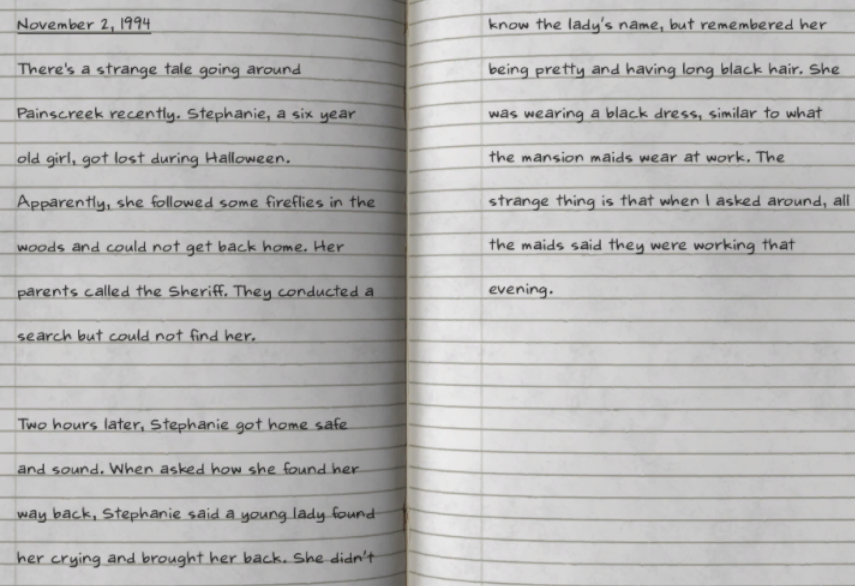 November 2, 1994
There's a strange tale going around
Painscreek recently. Stephanie, a six year
old girl, got lost during Halloween.
Apparently, she followed some fireflies in the
woods and could not get back home. Her
parents called the Sheriff. They conducted a
search but could not find her.
Two hours later, Stephanie got home safe
and sound. When asked how she found her
way back, Stephanie said a young lady found
her crying and brought her back. She didn't
know the lady's name, but remembered her
being pretty and having long black hair. She
was wearing a black dress, similar to what
the mansion maids wear at work. The
strange thing is that when I asked around, all
the maids said they were working that
evening.